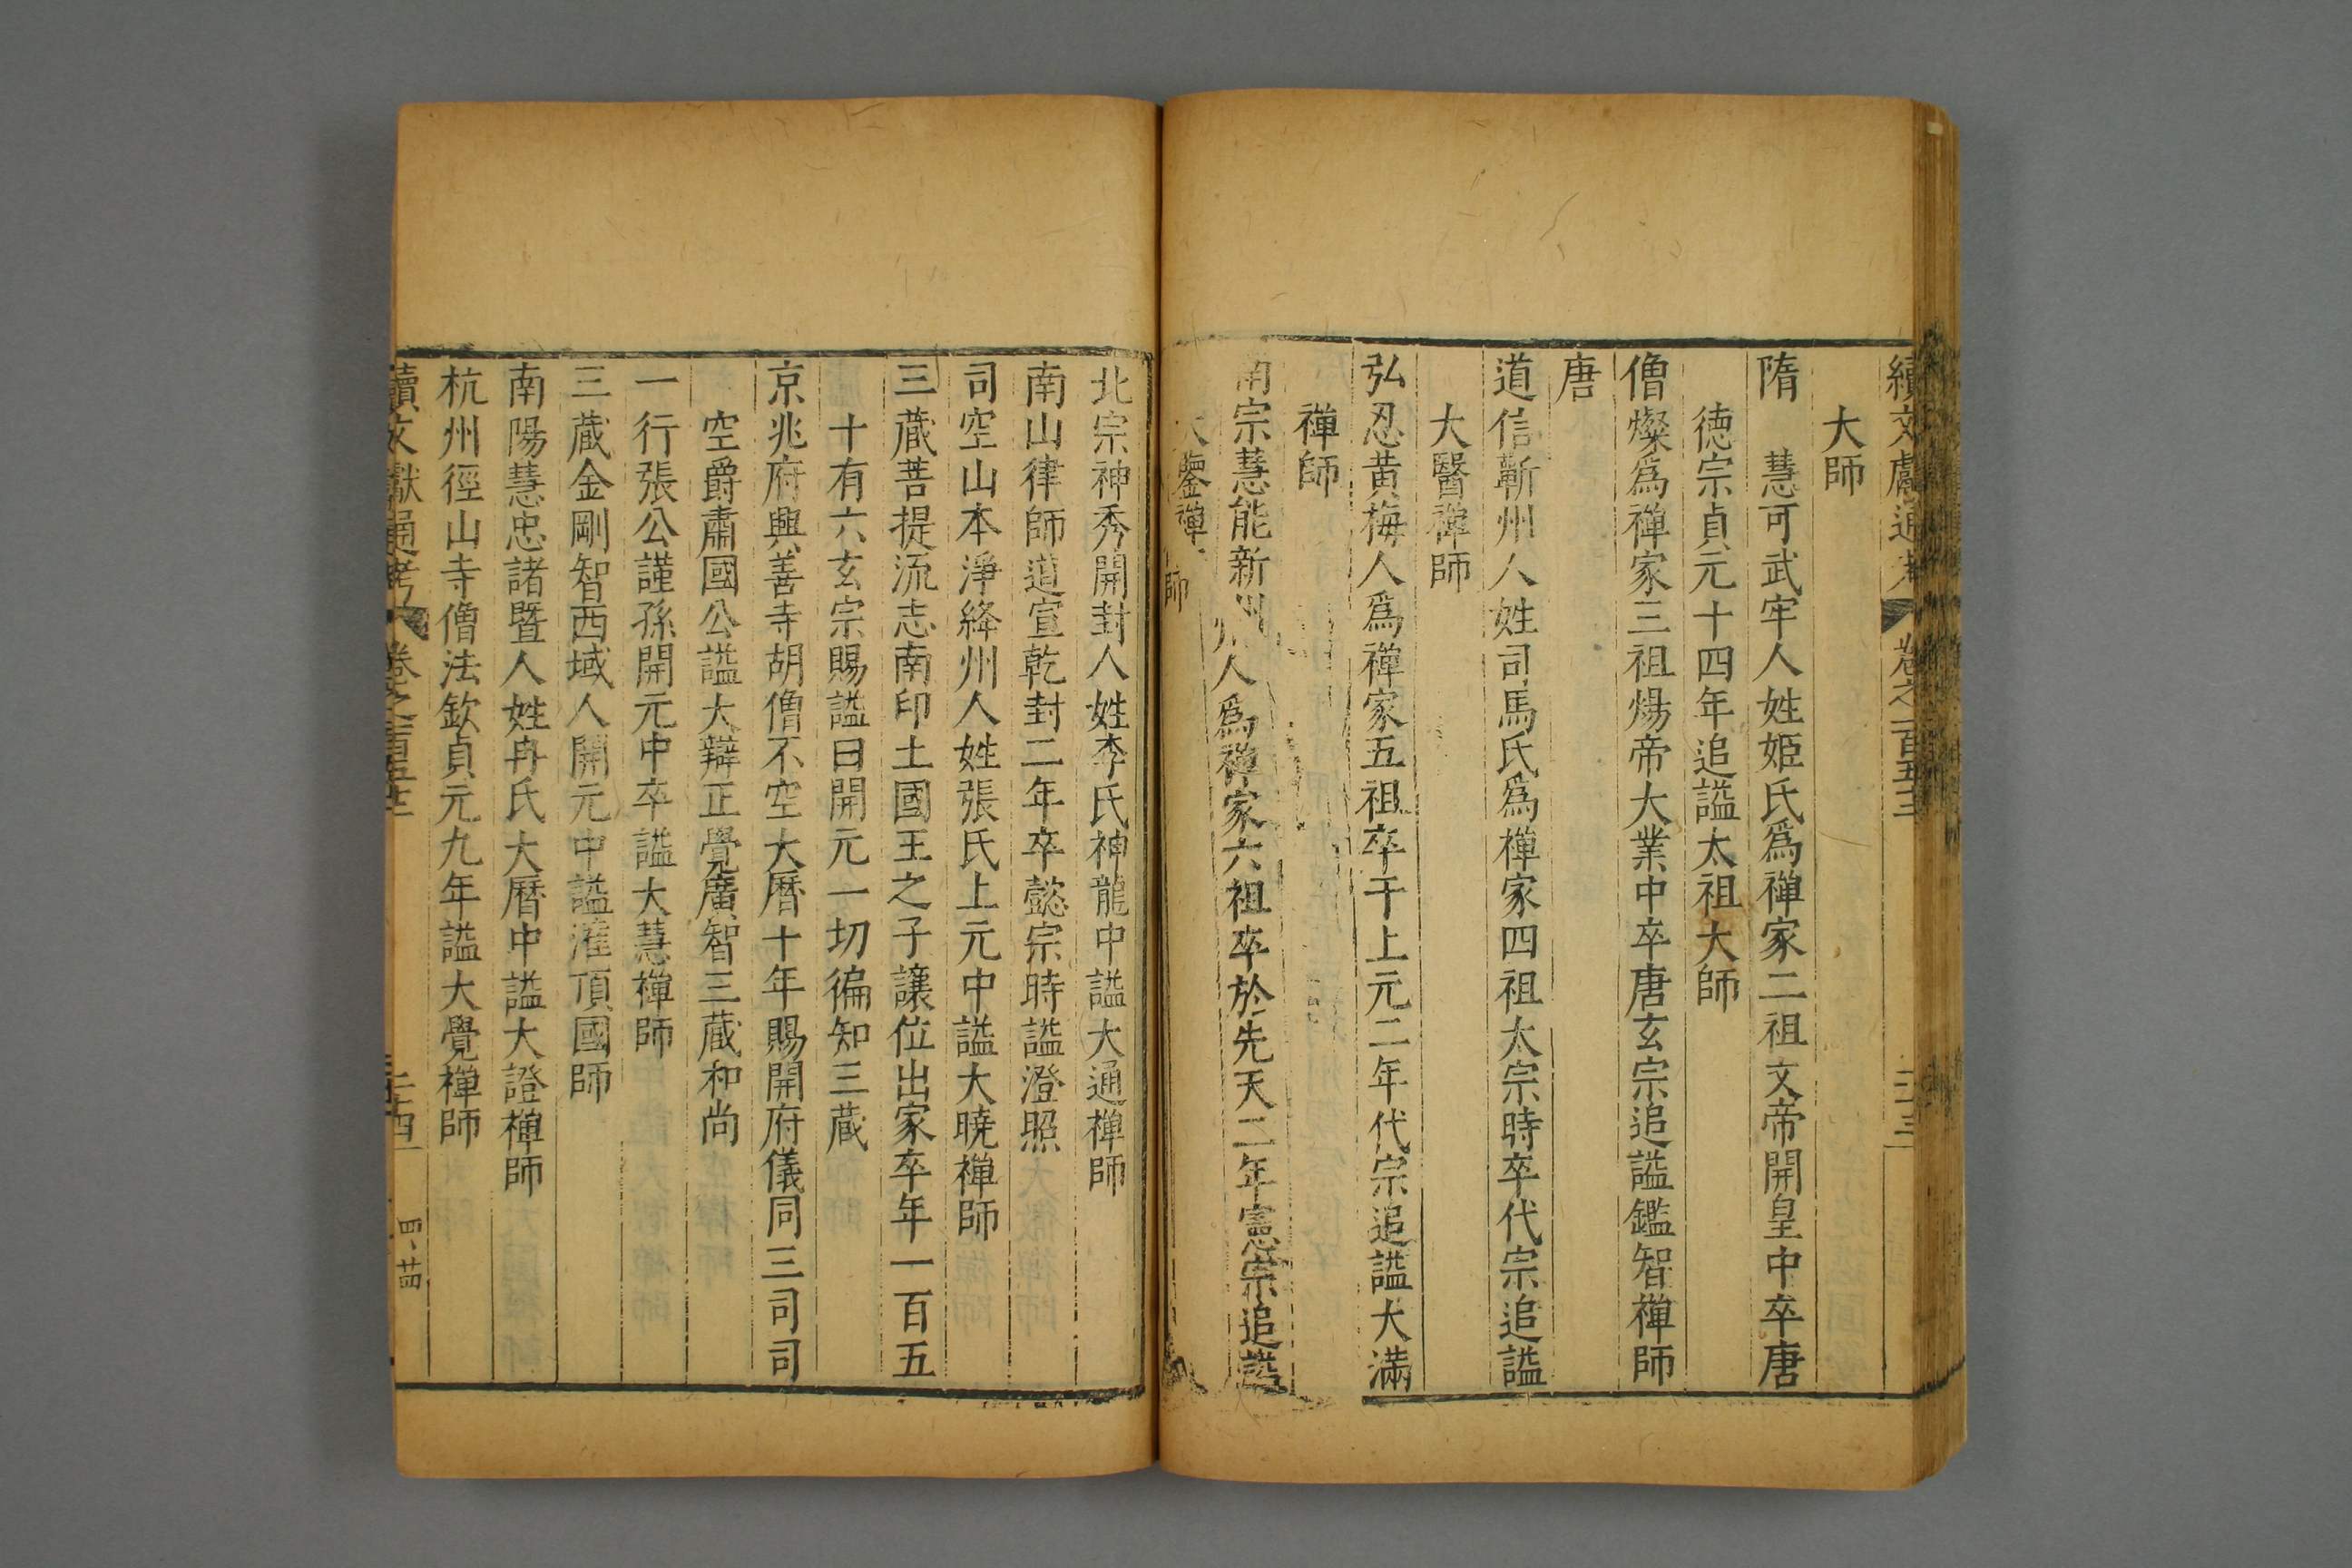 續文獻通考 卷之一百五十三 二十三
大師
隋 慧可武牢人姓姬氏爲禪家二祖文帝開皇中卒唐
德宗貞元十四年追謚太祖大師
僧燦爲禪家三祖煬帝大業中卒唐玄宗追謚鑑智禪師
唐
道信蘄州人姓司馬氏爲禪家四祖太宗時卒代宗追謚
大醫禪師
弘忍黃梅人爲禪家五祖卒于上元二年代宗追謚大滿
禪師
南宗慧能新州人爲禪家六祖卒於先天二年憲宗追謚
大鑒禪師
北宗神秀開封人姓李氏神龍中謚大通禪師
南山律師道宣乾封二年卒懿宗時謚澄照
司空山本淨絳州人姓張氏上元中謚大曉禪師
三藏菩提流志南印土國王之子讓位出家卒年一百五
十有六玄宗賜謚曰開元一切徧知三藏
京兆府興善寺胡僧不空大曆十年賜開府儀同三司司
空爵肅國公謚大辯正覺廣智三藏和尚
一行張公謹孫開元中卒謚大慧禪師
三藏金剛智西域人開元中謚灌頂國師
南陽慧忠諸暨人姓冉氏大曆中謚大證禪師
杭州徑山寺僧法欽貞元九年謚大覺禪師
續文獻通考 卷之一百五十三 二十四 四、廿四